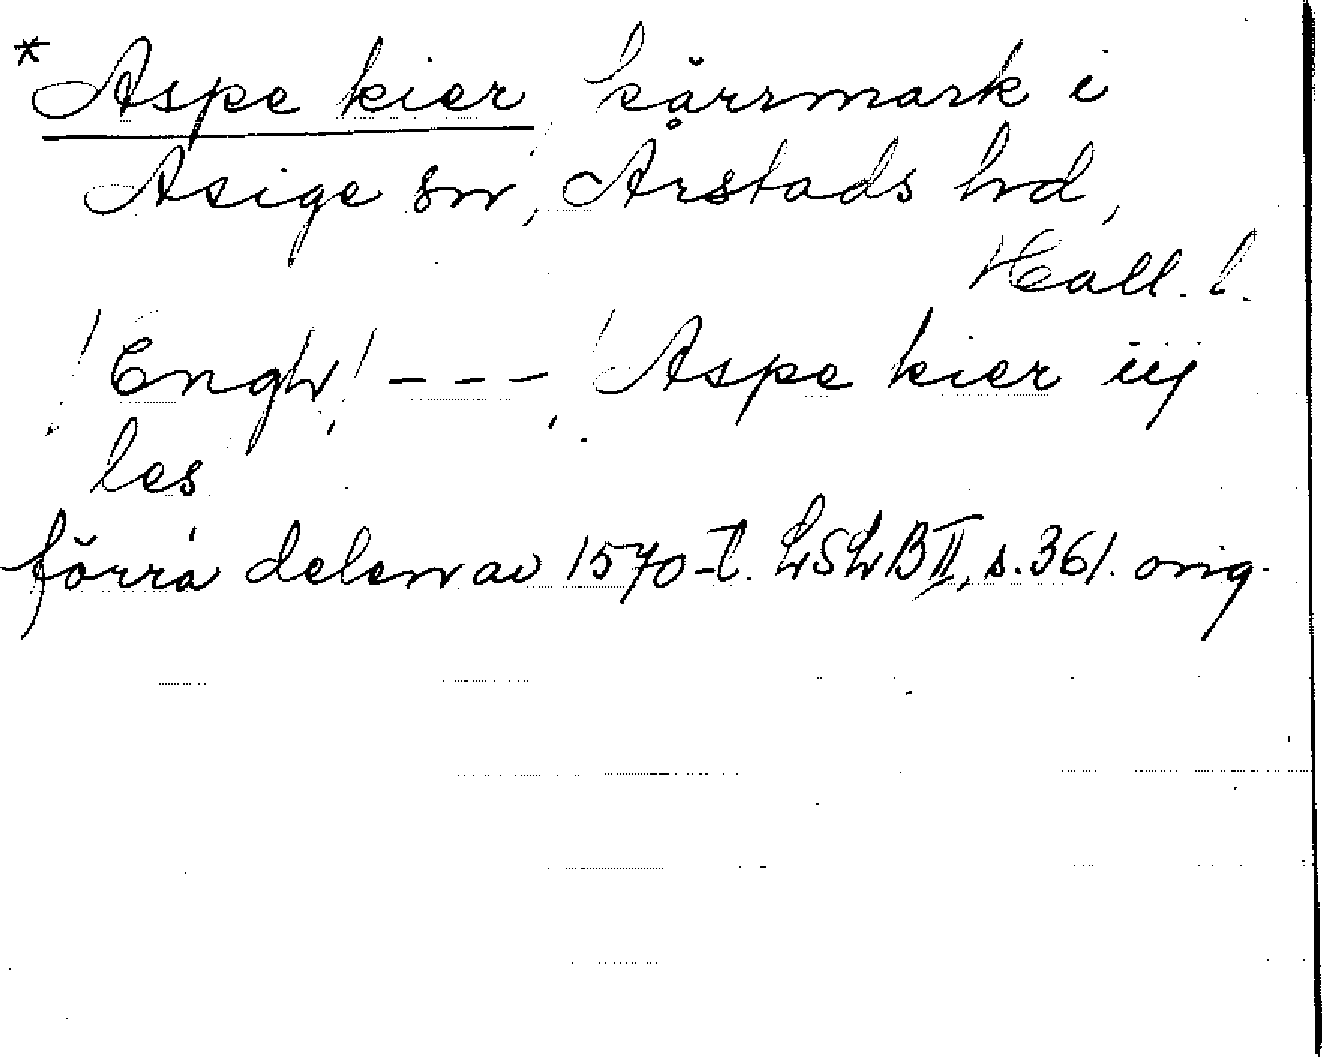 *Aspe kier, kärrmark i
Asige sn, Årstads hd,
Hall. l.
/: Engh :/ - - - /: Aspe kier iij
les
förra delen av 1570-t. LSLB II, s. 361. orig.